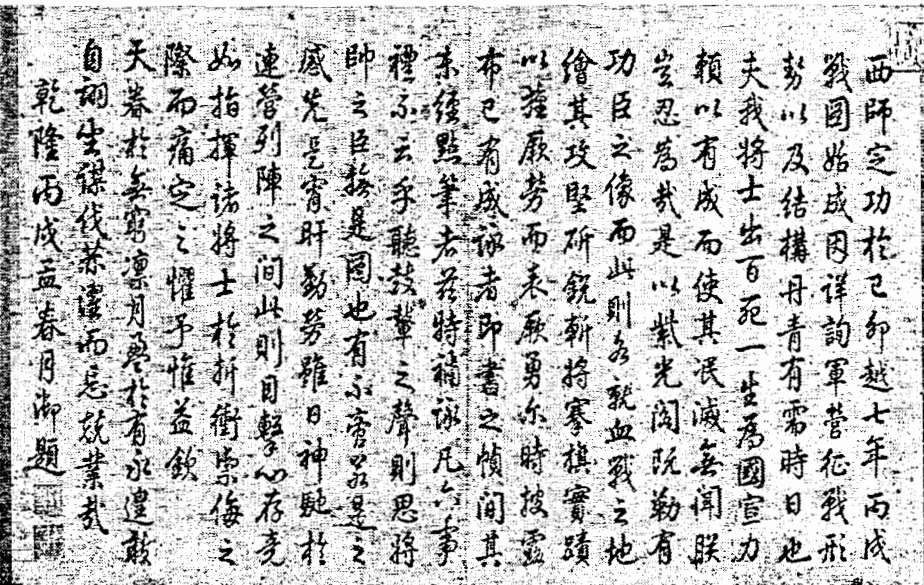 西師定功於己卯越七年丙戌
戰圖始成因詳詢軍營征戰形
勢以及結構丹青有需時日也
夫我將士出百死一生為國宣力
賴以有成而使其泯滅無聞朕
豈忍為哉是以紫光閣既勒有
功臣之像而此則各就血戰之地
繪其攻堅斫銳斬將搴旗實蹟
以旌厥勞而表厥勇尔時披露
布已有成詠者即書之幀間其
未經點筆者茲特補詠凡六事
禮不云乎聽鼓鼙之聲則思將
帥之臣於是圖也有不啻若是之
感先是宵旰勤勞雖日神馳於
連營列陣之間此則目擊心存竟
如指揮諸將士於折衝禦侮之
際而痛定之懼予惟益欽
天眷於無窮凜月盈於有永遑敢
自詡坐謀伐而忘兢業哉
乾隆丙戌孟春月御題